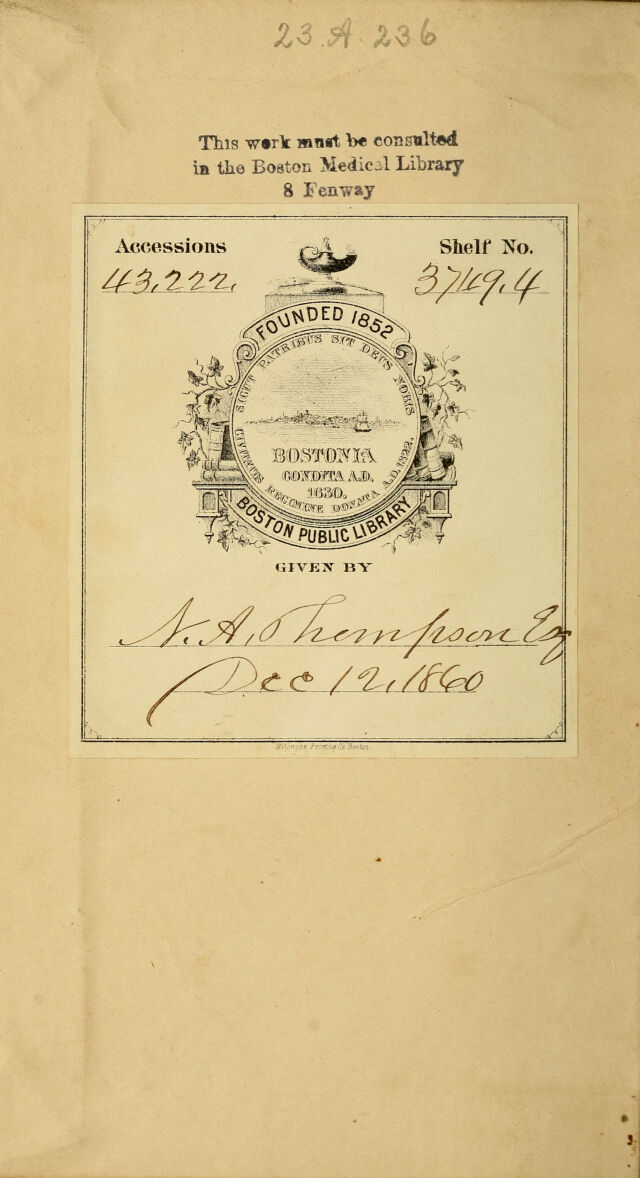 23.A.236
This work must be consulted
in the Boston Medical Library
8 Fenway
Accessions
43,222.
Shelf No.
3749.4
FOUNDED 1852
SICUT PATRIBUS SIT DEUS NOBIS
BOSTONIA
CONDITA A.D.
1630.
CIVITATIS REGIMINE DONATA A.D. 1822.
BOSTON PUBLIC LIBRARY
GIVEN BY
N. A. Thompson Esq
Dec 12, 1860
Heliotype Printing Co Boston.